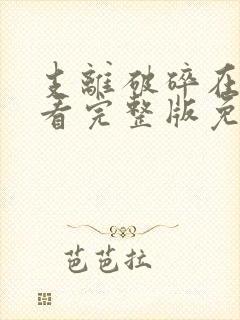 支離破碎在
看完整版免
芭芭拉